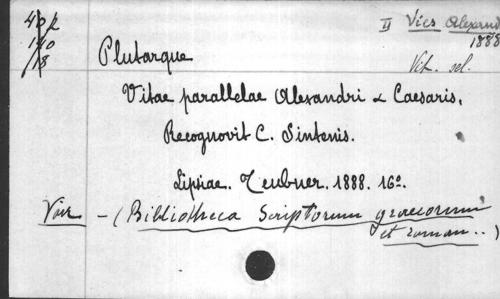 II Vies Alexand
1888
Vit. sel.
Plutarque
Vitae parallelae Alexandri & Caesaris.
Recognovit C. Sintenis.
Lipsiae. Teubner. 1888. 16o.
Voir - (Bibliotheca Scriptorum graecorum
et roman..)